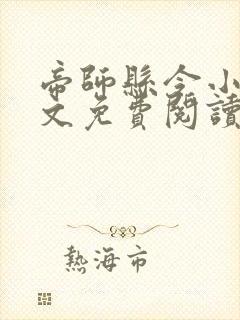 帝師縣令小
文免費閱讀
熱海市